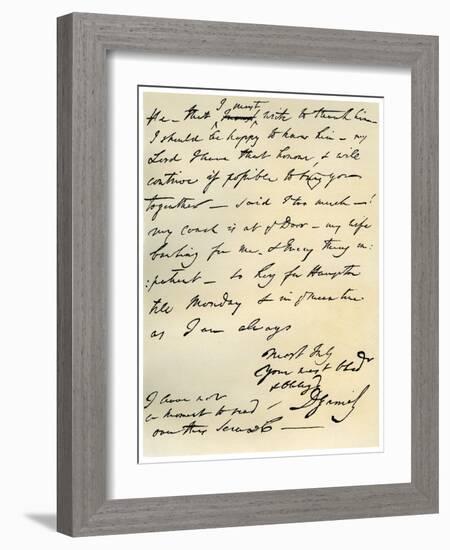 He - that I must write to thank him -
I should be happy to know him - my
Lord I have that honour, & will
contrive if possible to bring you
together - said I too much - !
my Coach is at ye Door - my Wife
bawling for me - & Every thing im:
:patient - so Hey for Hampton
till Monday & in ye Mean time
as I am always
Most truly
Your most Obedt
& obliged
D Garrick
I have not
a moment to read
over this